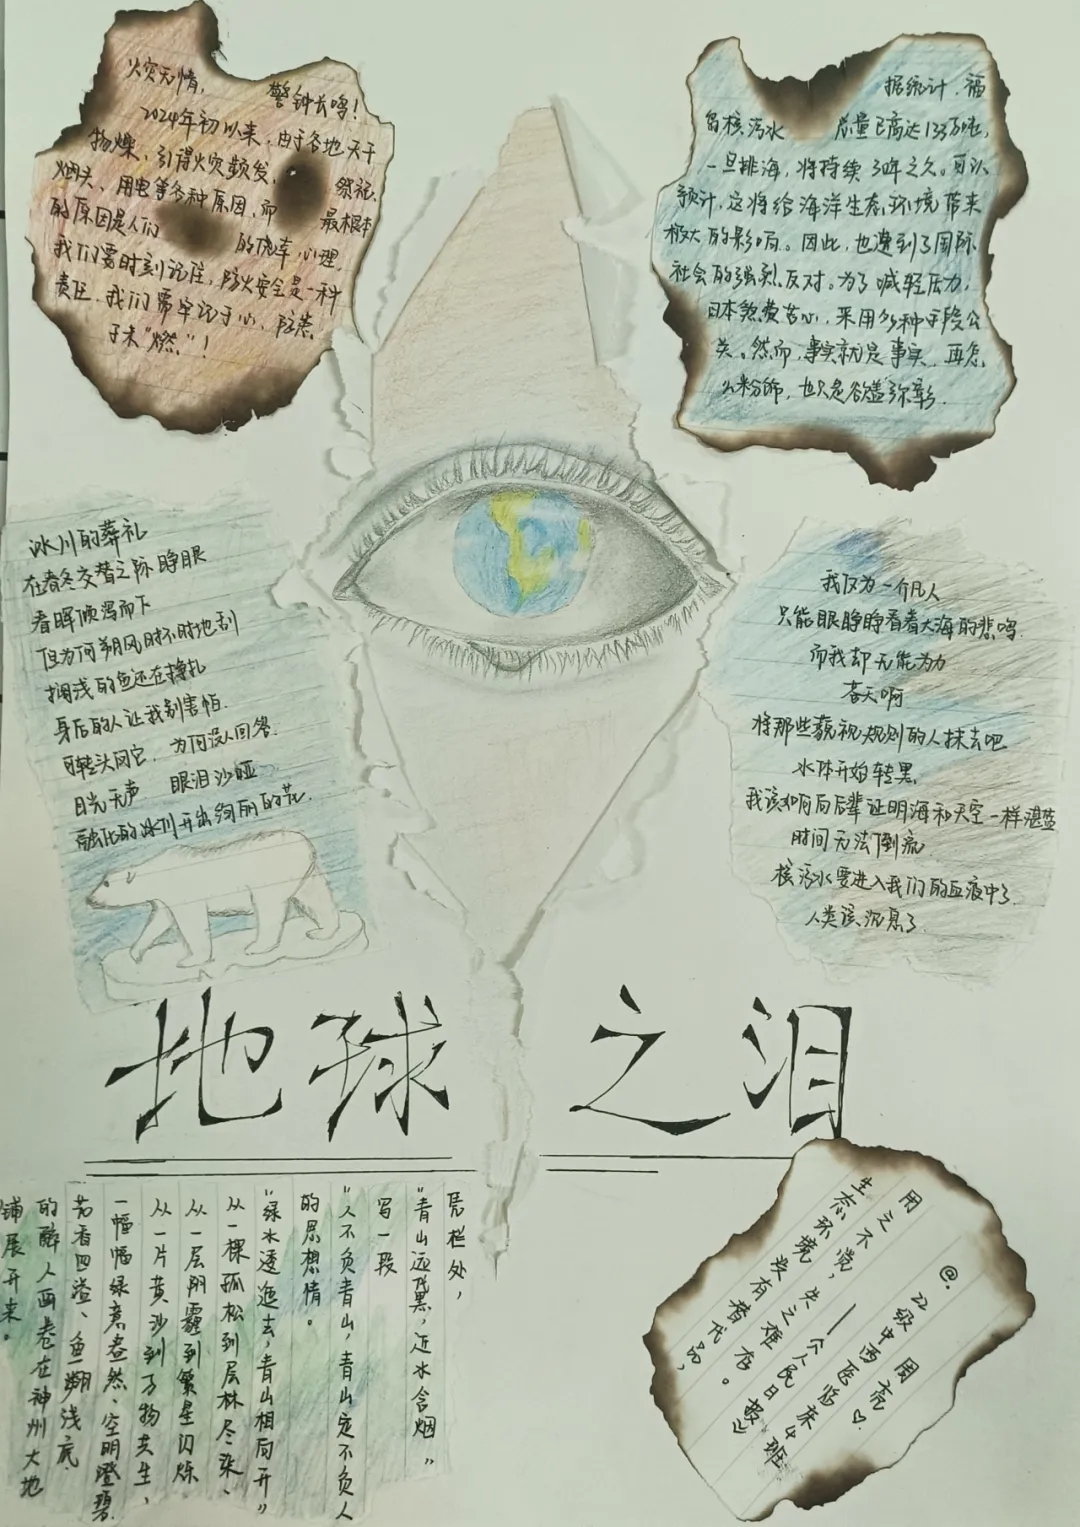 火灾无情，
警钟长鸣！
2024年初以来，由于各地天干
物燥，引得火灾频发，祭祀、
烟头、用电等各种原因，而最根本
的原因是人们的侥幸心理，
我们要时刻记住，防火安全是一种
责任，我们需牢记于心，防患
于未“燃”！
据统计，福
岛核污水总量已高达133万吨，
一旦排海，将持续30年之久。可以
预计，这将给海洋生态环境带来
极大的影响。因此，也遭到了国际
社会的强烈反对。为了减轻压力，
日本煞费苦心，采用多种手段公
关。然而，事实就是事实，再怎
么粉饰，也只是欲盖弥彰。
冰川的葬礼
在春冬交替之际睁眼
春晖倾泻而下
但为何朔风时不时地刮
搁浅的鱼还在挣扎
身后的人让我别害怕
可转头问它，为何没人回答
目光无声 眼泪沙哑
融化的冰川开出绚丽的花
我仅为一个凡人
只能眼睁睁看着大海的悲鸣
而我却无能为力
苍天啊
将那些藐视规则的人抹去吧
水体开始转黑
我该如何向后辈证明海和天空一样湛蓝
时间无法倒流
核污水要进入我们的血液中了
人类该沉思了
地球之泪
凭栏处，
“青山远黛，近水含烟”
写一段
“人不负青山，青山定不负人”
的思想情。
“绿水逶迤去，青山相向开”
从一棵孤松到层林尽染、
从一层阴霾到繁星闪烁
从一片黄沙到万物共生，
一幅幅绿意盎然、空明澄碧
花香四溢、鱼翔浅底
的醉人画卷在神州大地
铺展开来。
用之不觉，失之难存。
生态环境，没有替代品，
——《人民日报》
@. 周亮♡.
22级中西医临床4班